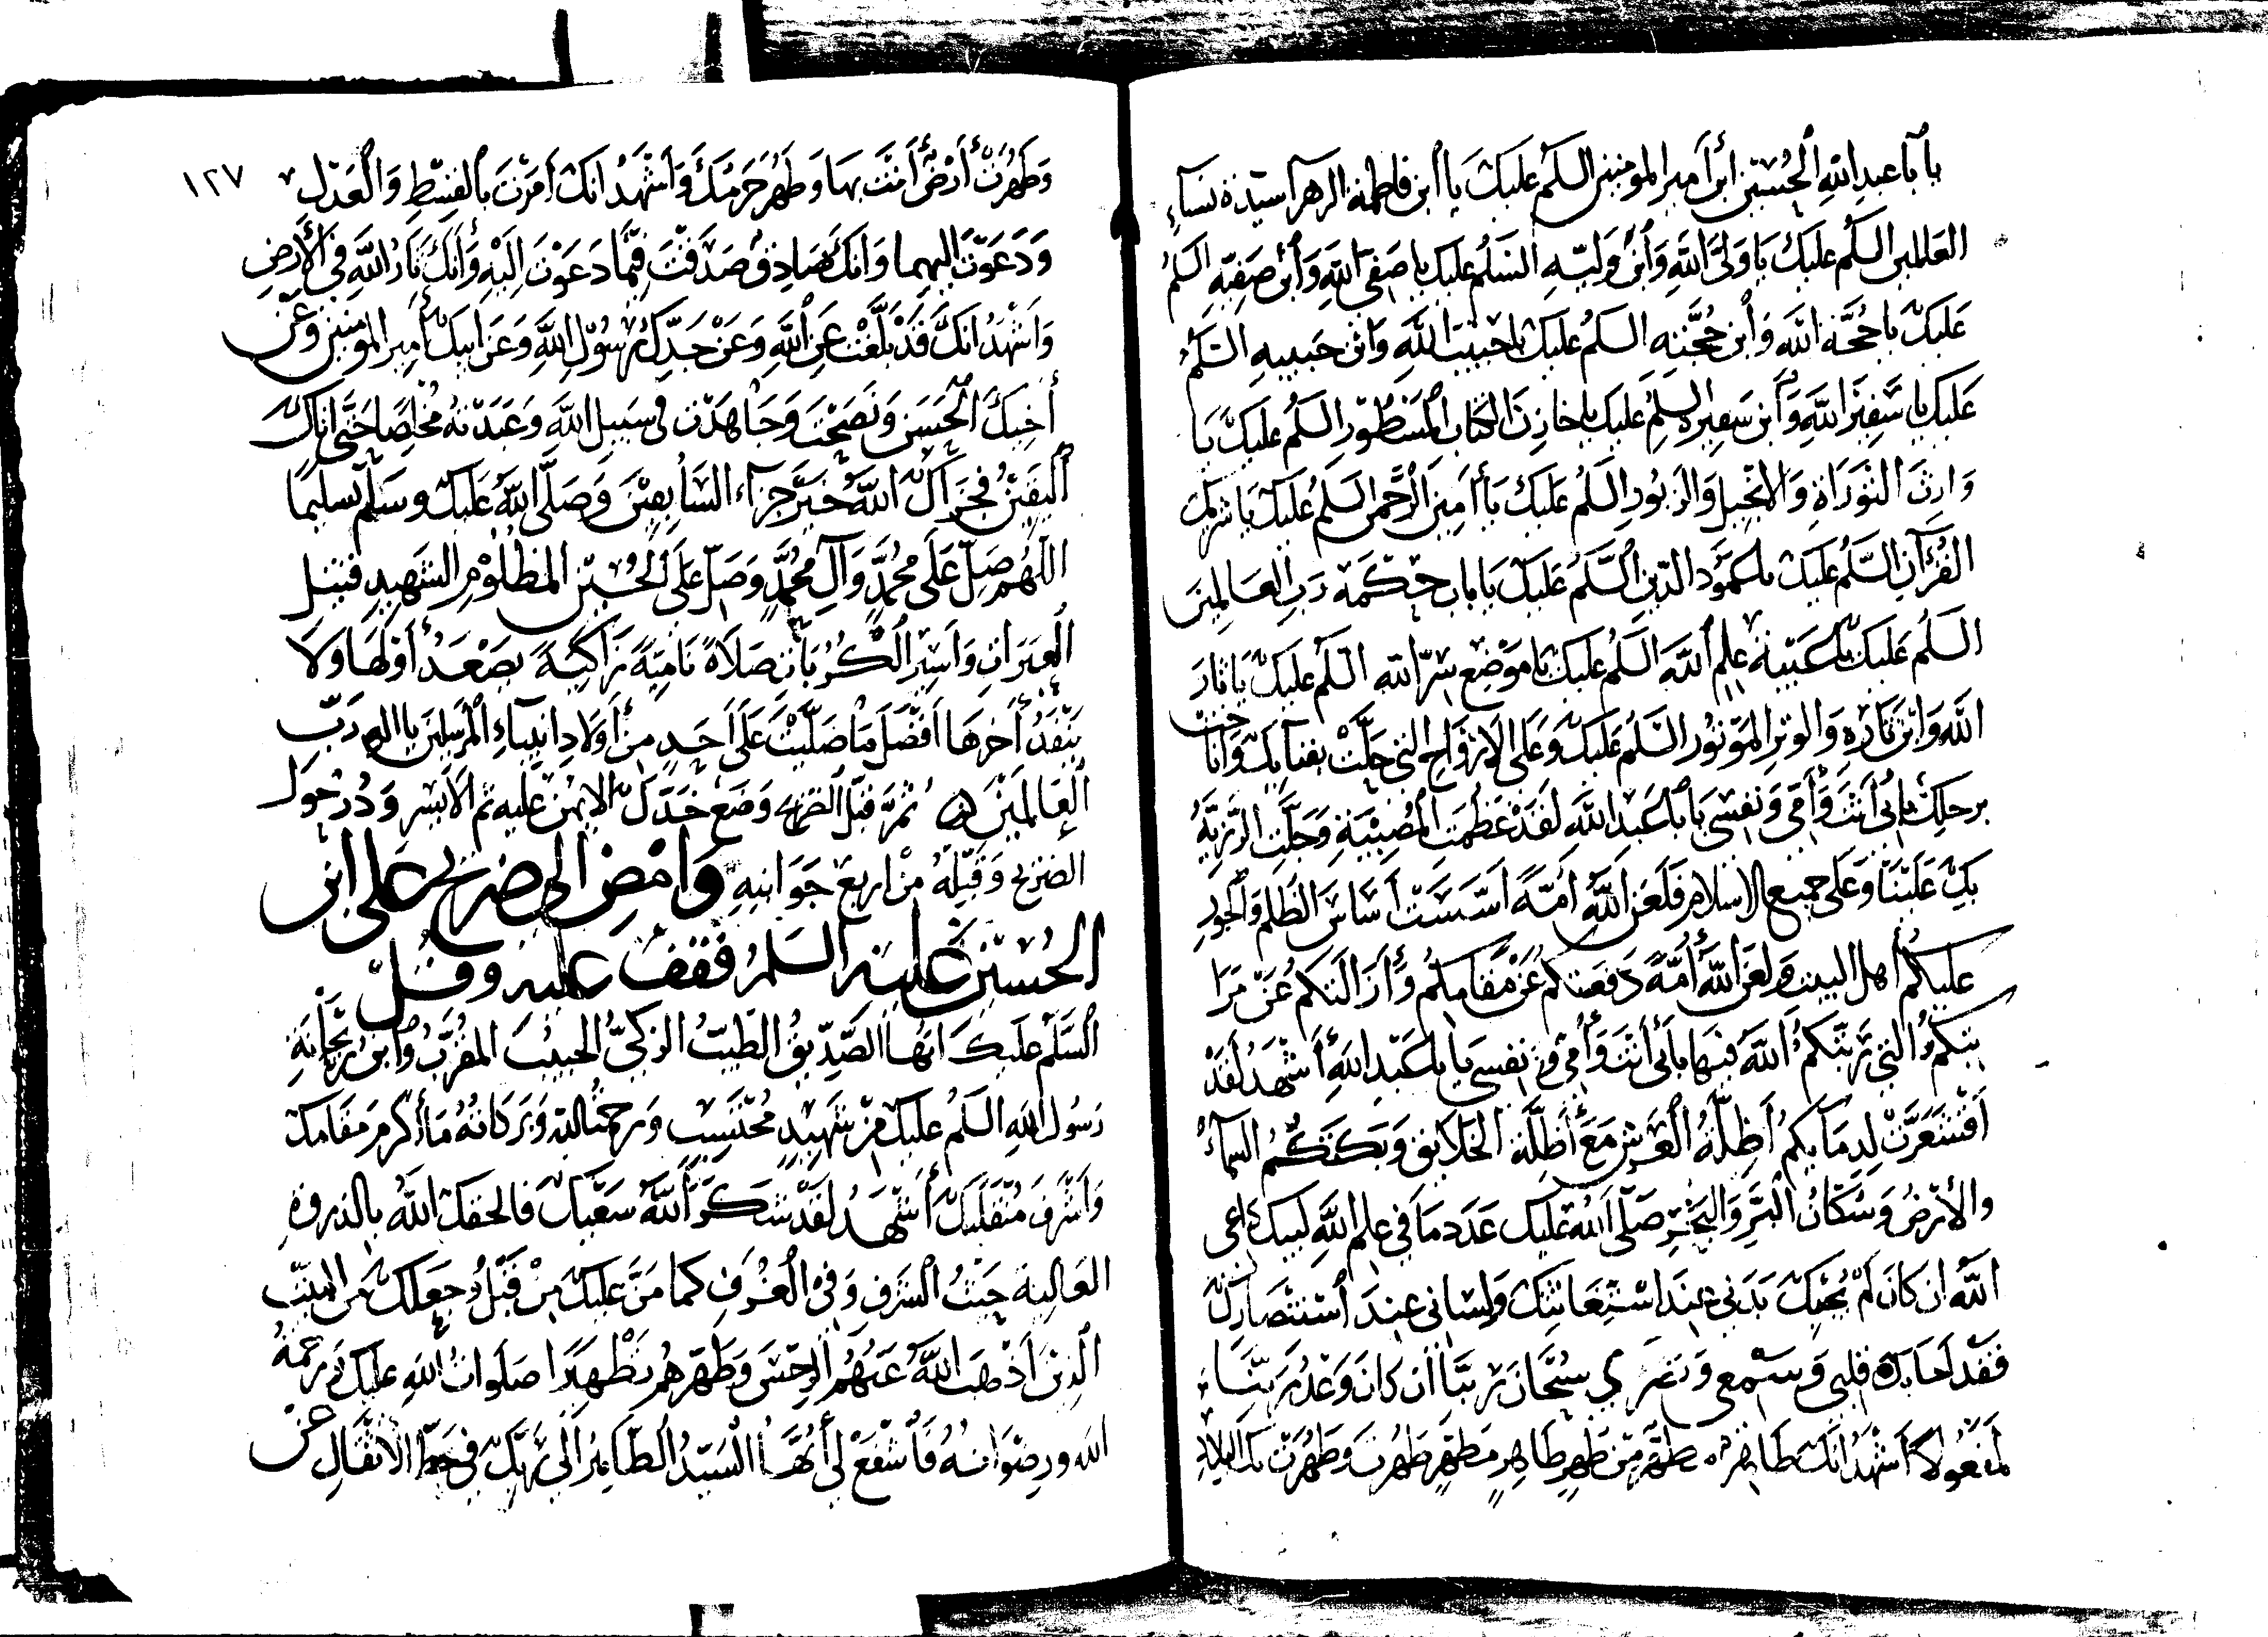 يا أبا عبد الله الحسين ابن أمير المؤمنين السلم عليك يا ابن فاطمة الزهرآ سيدة نسآء
العالمين السلم عليك يا ولى الله وابن وليه السلم عليك يا صفى الله وابن صفيه السلم
عليك يا حجة الله وابن حجته السلم عليك يا حبيب الله وابن حبيبه السلم
عليك يا سفير الله وابن سفيره السلم عليك يا خازن الكتاب المسطور السلم عليك يا
وارث التوراة والانجيل والزبور السلم عليك يا أمين الرحمن السلم عليك يا شريك
القرآن السلم عليك يا عمود الدين السلم عليك يا باب حكمة رب العالمين
السلم عليك يا عيبة علم الله السلم عليك يا موضع سر الله السلم عليك يا ثار
الله وابن ثاره والوتر الموتور السلم عليك وعلى الارواح التي حلت بفنائك وأناخت
برحلك بابى أنت وأمى ونفسى يا أبا عبد الله لقد عظمت المصيبة وجلت الرزية
بك علينا وعلى جميع الاسلام فلعن الله أمة اسست اساس الظلم والجور
عليكم اهل البيت ولعن الله أمة دفعتكم عن مقامكم وأزالتكم عن مرا
تبكم التي رتبكم الله فيها بأبى أنت وأمى ونفسى يا أبا عبد الله أشهد لقد
اقشعرت لدمائكم أظلة العرش مع أظلة الخلائق وبكتكم السمآء
والأرض وسكان البر والبحر صلى الله عليك عدد ما في علم الله لبيك داعى
الله ان كان لم يجبك بدنى عند استغاثتك ولسانى عند استنصارك
فقد اجابك قلبى وسمعى وبصرى سبحان ربنا ان كان وعد ربنا
لمفعولا أشهد انك طاهر مطهر من طهر طاهر مطهر طهرت وطهرت بك البلاد
١٢٧
وطهرت أرض أنت بها وطهر حرمك وأشهد انك أمرت بالقسط والعدل
ودعوت اليهما وانك صادق صدقت فيما دعوت اليه وأنك ثار الله في الأرض
واشهد انك قد بلغت عن الله وعن جدك رسول الله وعن ابيك أمير المؤمنين وعن
أخيك الحسن ونصحت وجاهدت في سبيل الله وعبدته مخلصا حتى اتاك
اليقين فجزاك الله خير جزاء السابقين وصلى الله عليك وسلم تسليما
اللهم صل على محمد وآل محمد وصل على الحسين المظلوم الشهيد قتيل
العبرات واسير الكربات صلاة نامية زاكية يصعد أولها ولا
ينفد أخرها افضل ما صليت على احد من أولاد انبياء المرسلين يا اله رب
العالمين ثم قبل الضريح وضع خدك الايمن عليه ثم الايسر ودر حول
الضريح وقبله من اربع جوانبه وامض الى ضريح على ابن
الحسين عليه السلم فقف عليه وقل
السلم عليك ايها الصديق الطيب الزكي الحبيب المقرب وابن ريحانة
رسول الله السلم عليك من شهيد محتسب ورحمة الله وبركاته ما أكرم مقامك
واشرف منقلبك أشهد لقد شكر الله سعيك فالحقك الله بالذروة
العالية حيث الشرف وفى الغرف كما من عليك من قبل وجعلك من اهل البيت
الذين اذهب الله عنهم الرجس وطهرهم تطهيرا صلوات الله عليك ورحمة
الله ورضوانه فاشفع لى أيها السيد الطاهر الى ربك في حط الاثقال عن